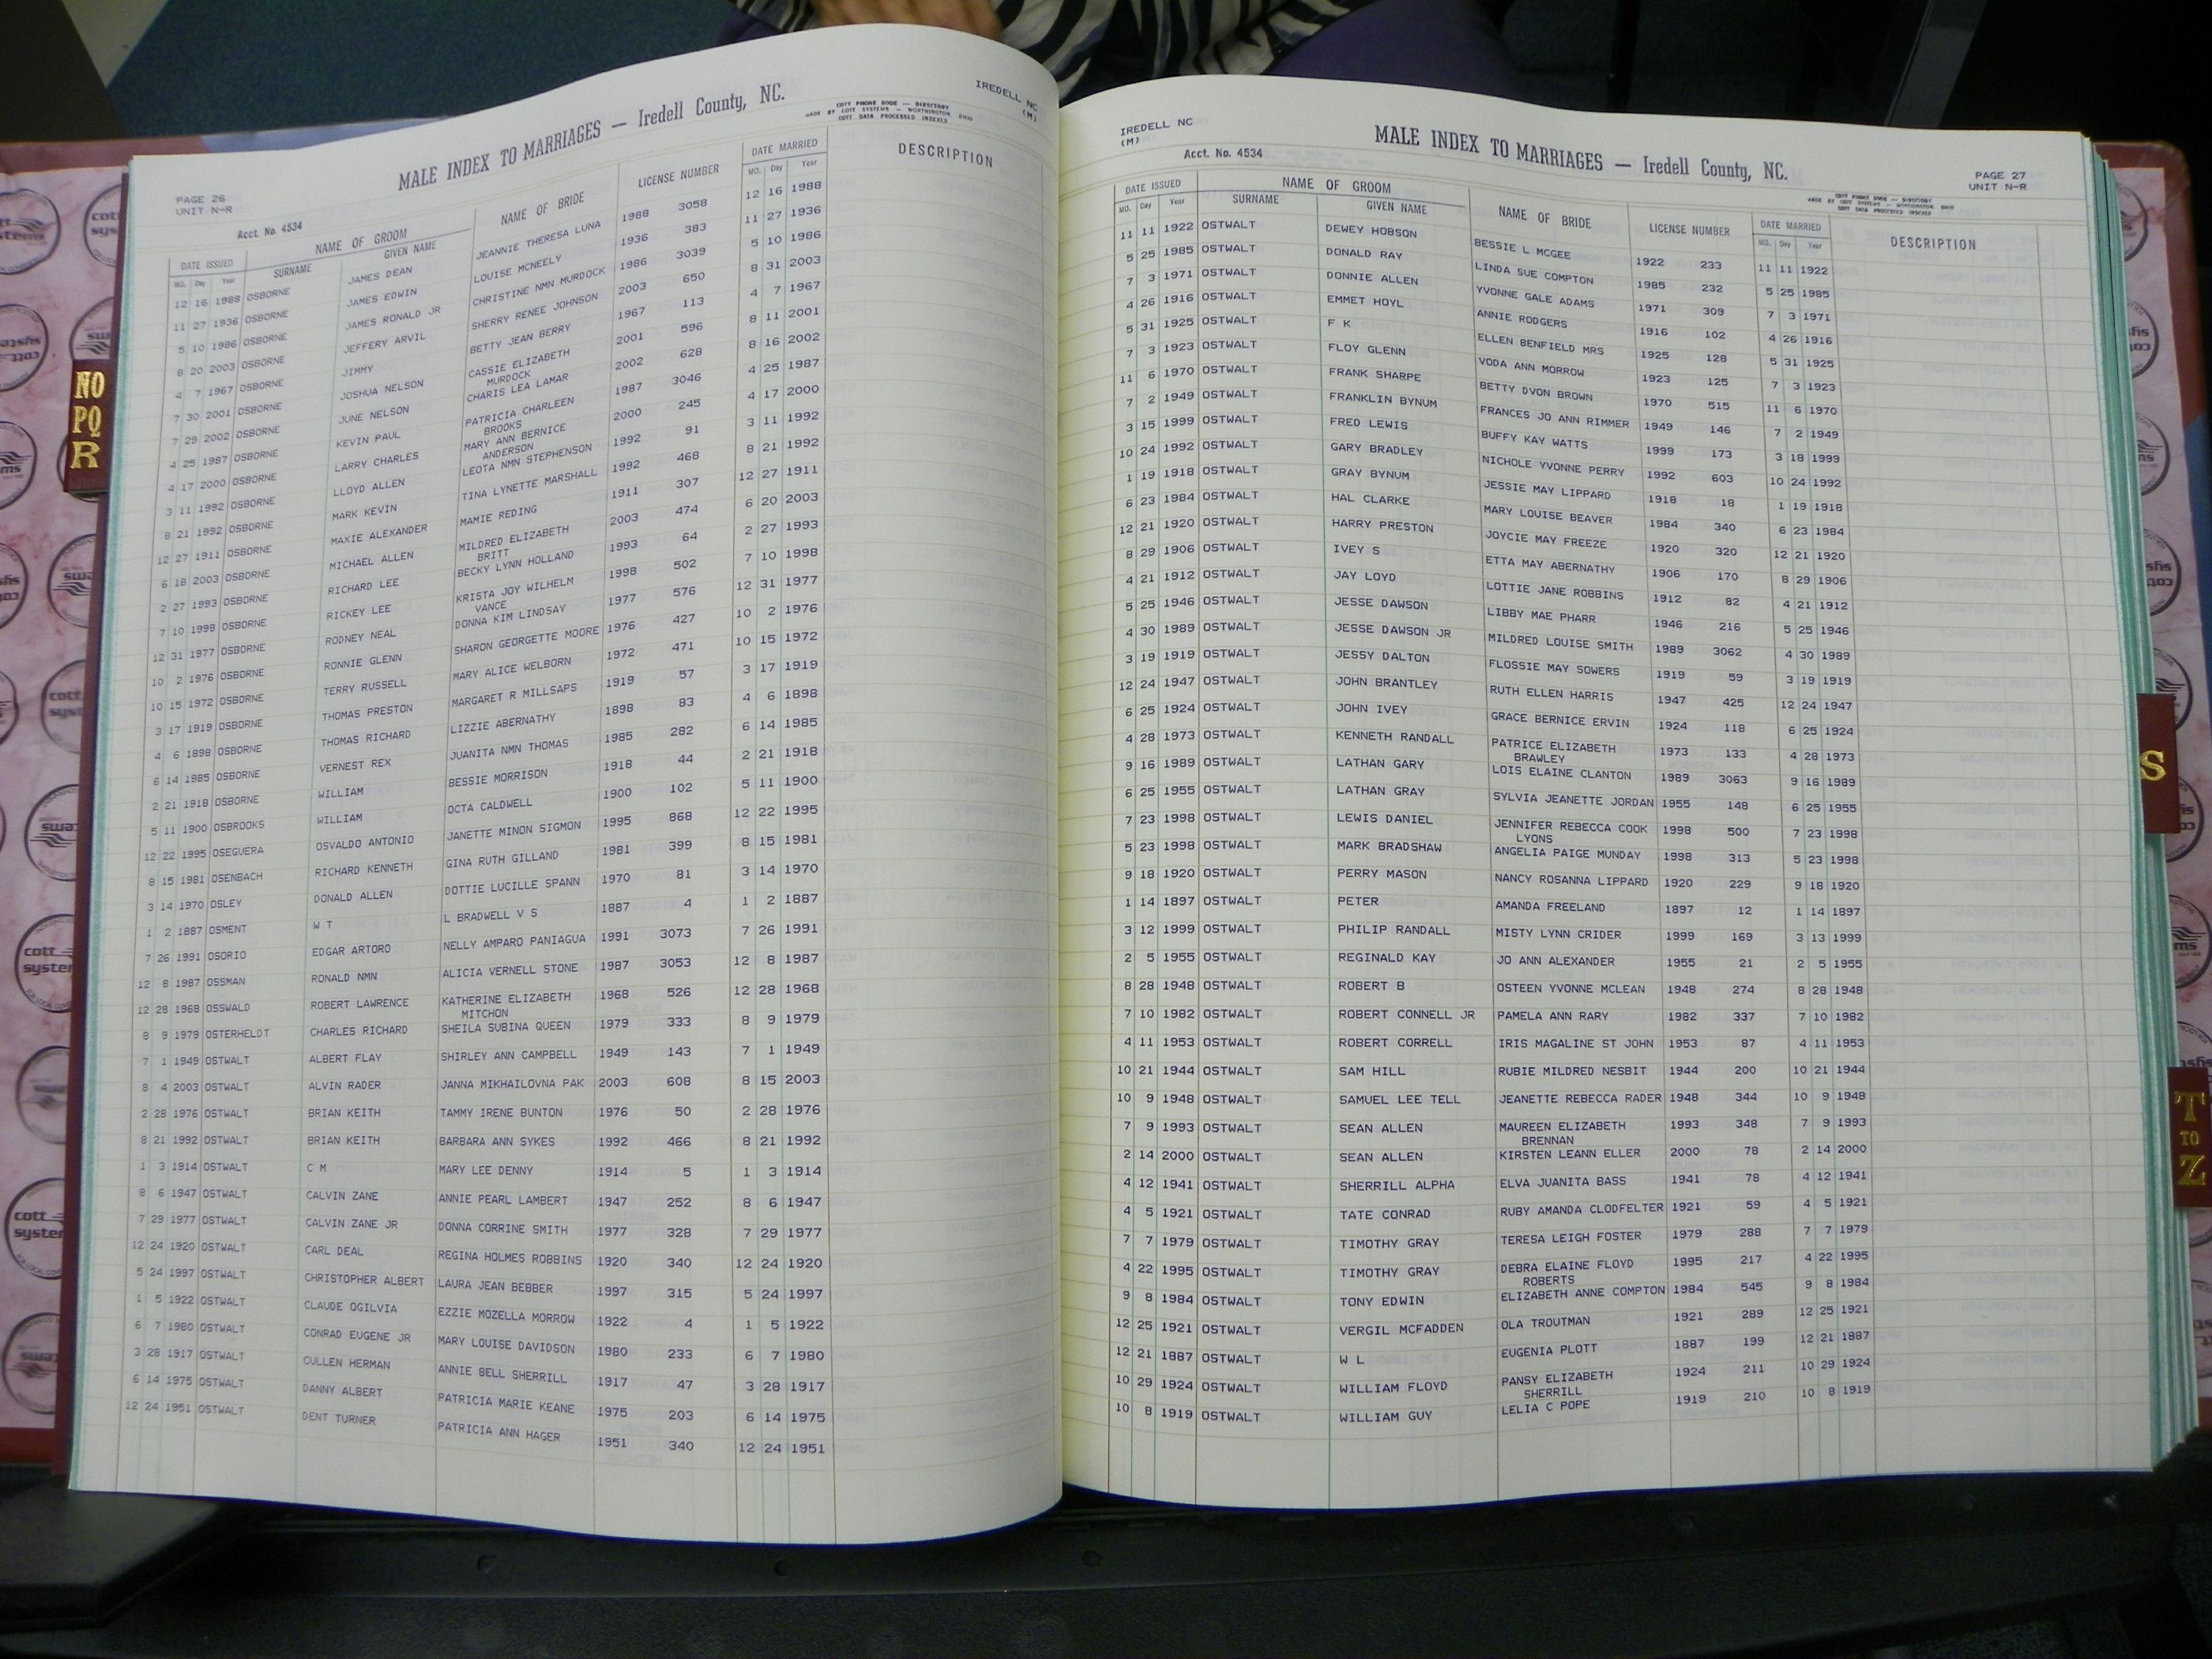 PAGE 26
UNIT N-R
MALE INDEX TO MARRIAGES — Iredell County, NC.
COTT PHONE BOOK — DIRECTORY
MADE BY COTT SYSTEMS — WORTHINGTON, OHIO
COTT DATA PROCESSED INDEXES
IREDELL NC
(M)
Acct. No. 4534
DATE ISSUED NAME OF GROOM NAME OF BRIDE LICENSE NUMBER DATE MARRIED DESCRIPTION
MO. Day Year SURNAME GIVEN NAME MO. Day Year
12 16 1988 OSBORNE JAMES DEAN JEANNIE THERESA LUNA 1988 3058 12 16 1988
11 27 1936 OSBORNE JAMES EDWIN LOUISE MCNEELY 1936 383 11 27 1936
5 10 1986 OSBORNE JAMES RONALD JR CHRISTINE NMN MURDOCK 1986 3039 5 10 1986
8 20 2003 OSBORNE JEFFERY ARVIL SHERRY RENEE JOHNSON 2003 650 8 31 2003
4 7 1967 OSBORNE JIMMY BETTY JEAN BERRY 1967 113 4 7 1967
7 30 2001 OSBORNE JOSHUA NELSON CASSIE ELIZABETH 2001 596 8 11 2001
MURDOCK
7 29 2002 OSBORNE JUNE NELSON CHARIS LEA LAMAR 2002 628 8 16 2002
4 25 1987 OSBORNE KEVIN PAUL PATRICIA CHARLEEN 1987 3046 4 25 1987
BROOKS
4 17 2000 OSBORNE LARRY CHARLES MARY ANN BERNICE 2000 245 4 17 2000
ANDERSON
3 11 1992 OSBORNE LLOYD ALLEN LEOTA NMN STEPHENSON 1992 91 3 11 1992
8 21 1992 OSBORNE MARK KEVIN TINA LYNETTE MARSHALL 1992 468 8 21 1992
12 27 1911 OSBORNE MAXIE ALEXANDER MAMIE REDING 1911 307 12 27 1911
6 18 2003 OSBORNE MICHAEL ALLEN MILDRED ELIZABETH 2003 474 6 20 2003
BRITT
2 27 1993 OSBORNE RICHARD LEE BECKY LYNN HOLLAND 1993 64 2 27 1993
7 10 1998 OSBORNE RICKEY LEE KRISTA JOY WILHELM 1998 502 7 10 1998
VANCE
12 31 1977 OSBORNE RODNEY NEAL DONNA KIM LINDSAY 1977 576 12 31 1977
10 2 1976 OSBORNE RONNIE GLENN SHARON GEORGETTE MOORE 1976 427 10 2 1976
10 15 1972 OSBORNE TERRY RUSSELL MARY ALICE WELBORN 1972 471 10 15 1972
3 17 1919 OSBORNE THOMAS PRESTON MARGARET R MILLSAPS 1919 57 3 17 1919
4 6 1898 OSBORNE THOMAS RICHARD LIZZIE ABERNATHY 1898 83 4 6 1898
6 14 1985 OSBORNE VERNEST REX JUANITA NMN THOMAS 1985 282 6 14 1985
2 21 1918 OSBORNE WILLIAM BESSIE MORRISON 1918 44 2 21 1918
5 11 1900 OSBROOKS WILLIAM OCTA CALDWELL 1900 102 5 11 1900
12 22 1995 OSEGUERA OSVALDO ANTONIO JANETTE MINON SIGMON 1995 868 12 22 1995
8 15 1981 OSENBACH RICHARD KENNETH GINA RUTH GILLAND 1981 399 8 15 1981
3 14 1970 OSLEY DONALD ALLEN DOTTIE LUCILLE SPANN 1970 81 3 14 1970
1 2 1887 OSMENT W T L BRADWELL V S 1887 4 1 2 1887
7 26 1991 OSORIO EDGAR ARTORO NELLY AMPARO PANIAGUA 1991 3073 7 26 1991
12 8 1987 OSSMAN RONALD NMN ALICIA VERNELL STONE 1987 3053 12 8 1987
12 28 1968 OSSWALD ROBERT LAWRENCE KATHERINE ELIZABETH 1968 526 12 28 1968
MITCHON
8 9 1979 OSTERHELDT CHARLES RICHARD SHEILA SUBINA QUEEN 1979 333 8 9 1979
7 1 1949 OSTWALT ALBERT FLAY SHIRLEY ANN CAMPBELL 1949 143 7 1 1949
8 4 2003 OSTWALT ALVIN RADER JANNA MIKHAILOVNA PAK 2003 608 8 15 2003
2 28 1976 OSTWALT BRIAN KEITH TAMMY IRENE BUNTON 1976 50 2 28 1976
8 21 1992 OSTWALT BRIAN KEITH BARBARA ANN SYKES 1992 466 8 21 1992
1 3 1914 OSTWALT C M MARY LEE DENNY 1914 5 1 3 1914
8 6 1947 OSTWALT CALVIN ZANE ANNIE PEARL LAMBERT 1947 252 8 6 1947
7 29 1977 OSTWALT CALVIN ZANE JR DONNA CORRINE SMITH 1977 328 7 29 1977
12 24 1920 OSTWALT CARL DEAL REGINA HOLMES ROBBINS 1920 340 12 24 1920
5 24 1997 OSTWALT CHRISTOPHER ALBERT LAURA JEAN BEBBER 1997 315 5 24 1997
1 5 1922 OSTWALT CLAUDE OGILVIA EZZIE MOZELLA MORROW 1922 4 1 5 1922
6 7 1980 OSTWALT CONRAD EUGENE JR MARY LOUISE DAVIDSON 1980 233 6 7 1980
3 28 1917 OSTWALT CULLEN HERMAN ANNIE BELL SHERRILL 1917 47 3 28 1917
6 14 1975 OSTWALT DANNY ALBERT PATRICIA MARIE KEANE 1975 203 6 14 1975
12 24 1951 OSTWALT DENT TURNER PATRICIA ANN HAGER 1951 340 12 24 1951
NO
PQ
R
IREDELL NC
(M)
Acct. No. 4534
MALE INDEX TO MARRIAGES — Iredell County, NC.
PAGE 27
UNIT N-R
MADE BY COTT PHONE BOOK — DIRECTORY
COTT SYSTEMS — WORTHINGTON, OHIO
COTT DATA PROCESSED INDEXES
DATE ISSUED NAME OF GROOM NAME OF BRIDE LICENSE NUMBER DATE MARRIED DESCRIPTION
MO. Day Year SURNAME GIVEN NAME MO. Day Year
11 11 1922 OSTWALT DEWEY HOBSON BESSIE L MCGEE 1922 233 11 11 1922
5 25 1985 OSTWALT DONALD RAY LINDA SUE COMPTON 1985 232 5 25 1985
7 3 1971 OSTWALT DONNIE ALLEN YVONNE GALE ADAMS 1971 309 7 3 1971
4 26 1916 OSTWALT EMMET HOYL ANNIE RODGERS 1916 102 4 26 1916
5 31 1925 OSTWALT F K ELLEN BENFIELD MRS 1925 128 5 31 1925
7 3 1923 OSTWALT FLOY GLENN VODA ANN MORROW 1923 125 7 3 1923
11 6 1970 OSTWALT FRANK SHARPE BETTY DVON BROWN 1970 515 11 6 1970
7 2 1949 OSTWALT FRANKLIN BYNUM FRANCES JO ANN RIMMER 1949 146 7 2 1949
3 15 1999 OSTWALT FRED LEWIS BUFFY KAY WATTS 1999 173 3 18 1999
10 24 1992 OSTWALT GARY BRADLEY NICHOLE YVONNE PERRY 1992 603 10 24 1992
1 19 1918 OSTWALT GRAY BYNUM JESSIE MAY LIPPARD 1918 18 1 19 1918
6 23 1984 OSTWALT HAL CLARKE MARY LOUISE BEAVER 1984 340 6 23 1984
12 21 1920 OSTWALT HARRY PRESTON JOYCIE MAY FREEZE 1920 320 12 21 1920
8 29 1906 OSTWALT IVEY S ETTA MAY ABERNATHY 1906 170 8 29 1906
4 21 1912 OSTWALT JAY LOYD LOTTIE JANE ROBBINS 1912 82 4 21 1912
5 25 1946 OSTWALT JESSE DAWSON LIBBY MAE PHARR 1946 216 5 25 1946
4 30 1989 OSTWALT JESSE DAWSON JR MILDRED LOUISE SMITH 1989 3062 4 30 1989
3 19 1919 OSTWALT JESSY DALTON FLOSSIE MAY SOWERS 1919 59 3 19 1919
12 24 1947 OSTWALT JOHN BRANTLEY RUTH ELLEN HARRIS 1947 425 12 24 1947
6 25 1924 OSTWALT JOHN IVEY GRACE BERNICE ERVIN 1924 118 6 25 1924
4 28 1973 OSTWALT KENNETH RANDALL PATRICE ELIZABETH 1973 133 4 28 1973
BRAWLEY
9 16 1989 OSTWALT LATHAN GARY LOIS ELAINE CLANTON 1989 3063 9 16 1989
6 25 1955 OSTWALT LATHAN GRAY SYLVIA JEANETTE JORDAN 1955 148 6 25 1955
7 23 1998 OSTWALT LEWIS DANIEL JENNIFER REBECCA COOK 1998 500 7 23 1998
LYONS
5 23 1998 OSTWALT MARK BRADSHAW ANGELIA PAIGE MUNDAY 1998 313 5 23 1998
9 18 1920 OSTWALT PERRY MASON NANCY ROSANNA LIPPARD 1920 229 9 18 1920
1 14 1897 OSTWALT PETER AMANDA FREELAND 1897 12 1 14 1897
3 12 1999 OSTWALT PHILIP RANDALL MISTY LYNN CRIDER 1999 169 3 13 1999
2 5 1955 OSTWALT REGINALD KAY JO ANN ALEXANDER 1955 21 2 5 1955
8 28 1948 OSTWALT ROBERT B OSTEEN YVONNE MCLEAN 1948 274 8 28 1948
7 10 1982 OSTWALT ROBERT CONNELL JR PAMELA ANN RARY 1982 337 7 10 1982
4 11 1953 OSTWALT ROBERT CORRELL IRIS MAGALINE ST JOHN 1953 87 4 11 1953
10 21 1944 OSTWALT SAM HILL RUBIE MILDRED NESBIT 1944 200 10 21 1944
10 9 1948 OSTWALT SAMUEL LEE TELL JEANETTE REBECCA RADER 1948 344 10 9 1948
7 9 1993 OSTWALT SEAN ALLEN MAUREEN ELIZABETH 1993 348 7 9 1993
BRENNAN
2 14 2000 OSTWALT SEAN ALLEN KIRSTEN LEANN ELLER 2000 78 2 14 2000
4 12 1941 OSTWALT SHERRILL ALPHA ELVA JUANITA BASS 1941 78 4 12 1941
4 5 1921 OSTWALT TATE CONRAD RUBY AMANDA CLODFELTER 1921 59 4 5 1921
7 7 1979 OSTWALT TIMOTHY GRAY TERESA LEIGH FOSTER 1979 288 7 7 1979
4 22 1995 OSTWALT TIMOTHY GRAY DEBRA ELAINE FLOYD 1995 217 4 22 1995
ROBERTS
9 8 1984 OSTWALT TONY EDWIN ELIZABETH ANNE COMPTON 1984 545 9 8 1984
12 25 1921 OSTWALT VERGIL MCFADDEN OLA TROUTMAN 1921 289 12 25 1921
12 21 1887 OSTWALT W L EUGENIA PLOTT 1887 199 12 21 1887
10 29 1924 OSTWALT WILLIAM FLOYD PANSY ELIZABETH 1924 211 10 29 1924
SHERRILL
10 8 1919 OSTWALT WILLIAM GUY LELIA C POPE 1919 210 10 8 1919
S
T
TO
Z
cott
systems